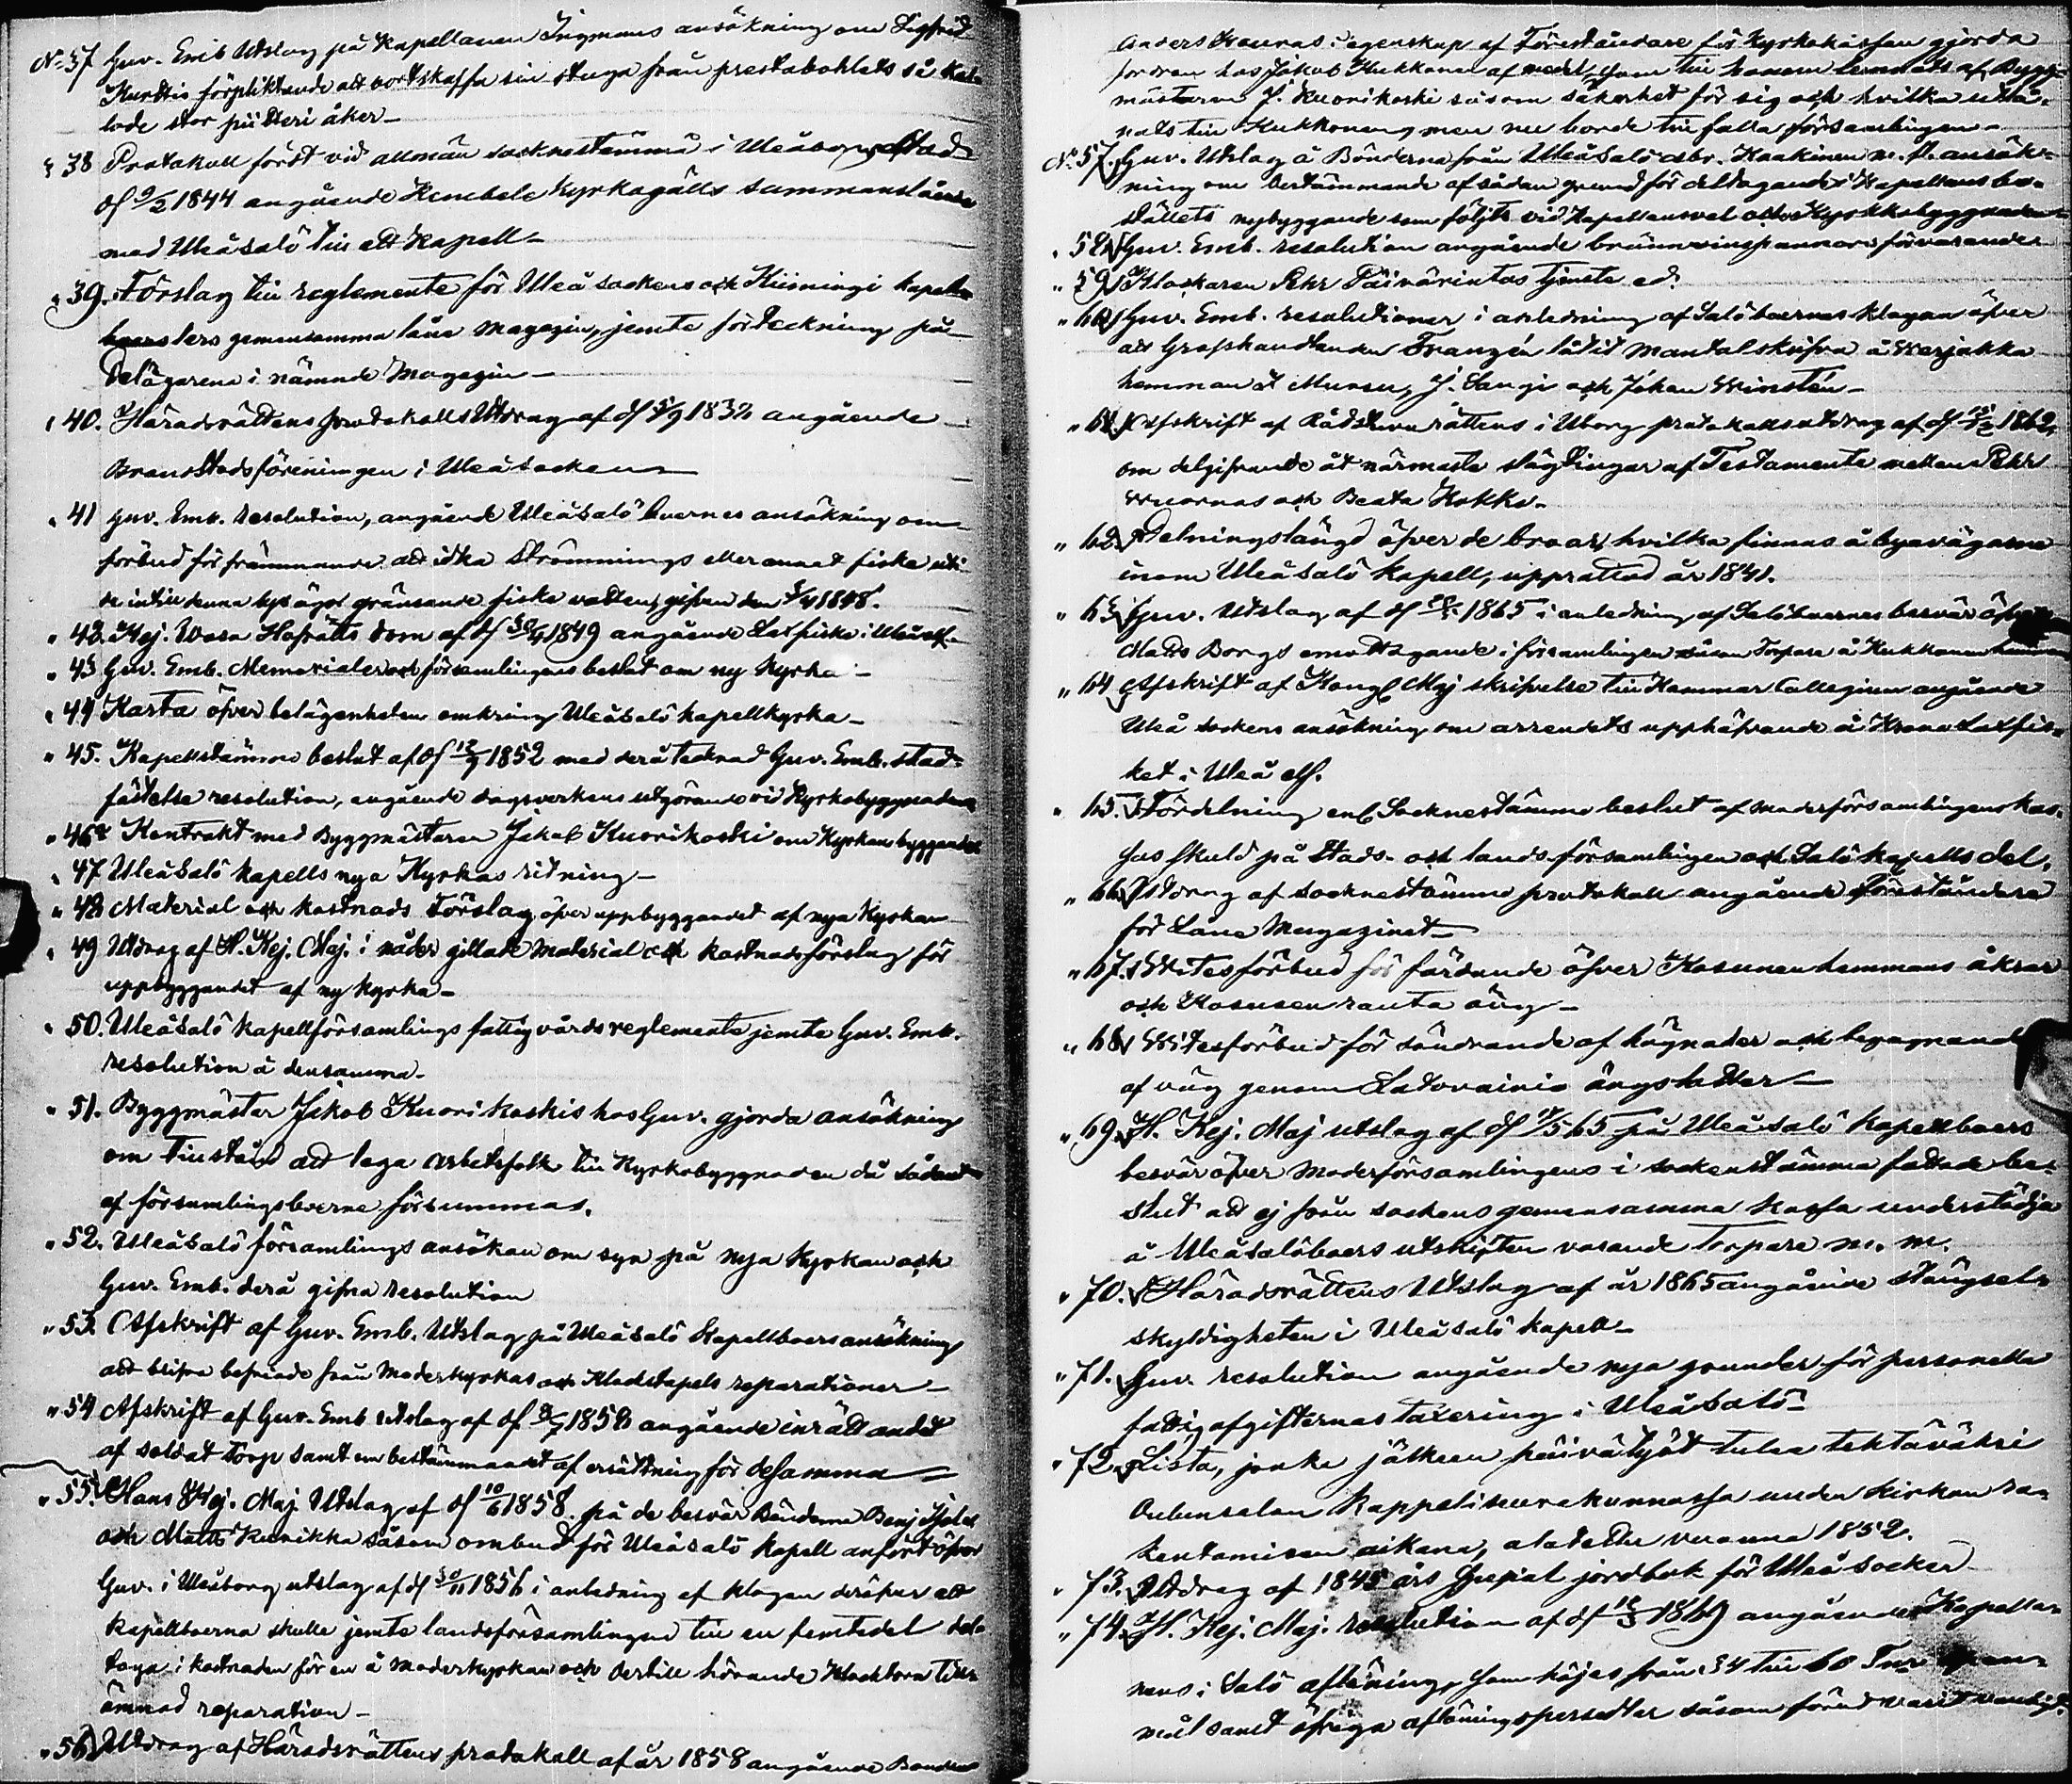 No 37 Guv. Emb Utslag på Kapellanen Ingmans ansökning om Sigfrid
Kurttis förpliktande att bortskaffa sin stuga från prestabohlets så kal-
lade stor piitteri åker_
" 38 Protokoll fördt vid allmän socknestämma i Uleåborgs Stad
d 9/2 1844 angående Kembele Kyrkogälls sammanslående
med Uleåsalo till ett Kapell_
" 39. Förslag till reglemente för Uleå sockens och Kiimingi kapell
boersters gemensamma låne Magazin, jemte förteckning på
Delägarena i nämnde Magazin_
" 40. Häradsrättens protokolls Utdrag af d 5/9 1832 angående
Brandstodsföreningen i Uleå socken_
" 41 Guv. Emb. resolution, angående Uleåsalo boernes ansökning om
förbud för främmande att idka Strömmings eller annat fiske uti
de intill denna bys ägor gränsande fiske vatten, gifven den 5/4 1848.
" 42. Kej. Wasa Hofrätts dom af d 30/4 1849 angående Laxfiske i Uleå elf_
" 43 Guv. Emb. Memorialer och församlingens beslut om ny Kyrka_
" 44 Karta öfver belägenheten omkring Uleåsalo kapellkyrka_
" 45. Kapellstämmo beslut af d 12/9 1852 med derå tecknad Guv. Emb. stad-
fästelse resolution, angående dagsverkens utgörande vid Kyrkobyggnaden
" 46. Kontrakt med Byggmästaren Jakob Kuorikoski om Kyrkans byggande
" 47 Uleåsalo kapells nya Kyrkas ritning_
" 48 Material och kostnads Förslag öfver uppbyggandet af nya Kyrkan
" 49 Utdrag af H. Kej. Maj. i nåder gillade Material och kostnadsförslag för
uppbyggandet af ny kyrka_
" 50. Uleåsalo kapellförsamlings fattigvårdsreglemente jemte Guv. Emb.
resolution å densamma_
" 51. Byggmäster Jakob Kuorikoskis hos Guv. gjorda ansökning
om tillstånd att lega arbetsfolk till Kyrkobyggnaden då sådant
af församlingsboerne försummas.
" 52. Uleåsalo församlings ansökan om syn på nya kyrkan och
Guv. Emb. derå gifna resolution
" 53. Afskrift af Guv. Emb. Utslag på Uleåsalo Kapellboers ansökning
att blifva befriade från Moderkyrkas och Klockstapels reparationer_
" 54 Afskrift af Guv. Emb utslag af d 1858 angående inrättandet
af soldat torp samt om bestämmandet af ersättning för desamma_
" 55. Hans Kej. Maj. Utslag af d 10/6 1858 på de besvär Bönderne Benj
och Matts Kunikka såsom ombud för Uleåsalo kapell anfört öfver
Guv. i Uleåborg utslag af d 30/11 1856 i anledning af klagan deröfver att
kapellboerna skulle jemte landsförsamlingen till en femtedel del-
taga i kostnaden för en å moderkyrkan och dertill hörande Klocktorn till-
ämnad reparation_
" 56 Utdrag af Häradsrättens protokoll af år 1858 angående Bonden
Anders Kaunas i egenskap af Föreståndare för Kyrkokassan gjorda
fordran hos Jakob Kukkonen af medel, som till honom lemnats af Bygg-
mästaren J. Kuorikoski såsom säkerhet för sig och hvilka utdå-
nats till Kukkonen, men nu borde tillfalla församlingen_
No. 57. Guv. Utslag å Bönderna från Uleåsalo Abr. Kaakinen m. fl. ansök-
ning om bestämmande af sådan grund för deltagande i Kapellans bo-
ställets nybyggande som följts vid kapellansval och Kyrkobyggnaden
" 58 Guv. Emb. resolution angående brännvinspannors förvarande
" 59 Klockaren Pehr Päivärintas tjenste ed.
" 60 Guv. Emb. resolutioner i anledning af Salo boernas klagan öfver
att Grosshandlanden Franzén låtit Mantalskrifva å Werjakka
hemman J. Sangi och Johan Winstén_
" 61. Afskrift af Rådstuvurättens i Uborg protokollsutdrag af d 1862,
om delgifvande åt närmaste slägtingar af Testamente mellan Pehr
Wuornas och Beata Hokko_
" 62. Delningslängd öfver de broar, hvilka finnas å byavägarne
inom Uleåsalo Kapell, upprättad år 1841.
" 63 Guv. Utslag af d 1865 i anledning af Saloboernes besvär öfver
Matts Borgs emottagande i församlingen såsom Torpare å Kukkonen hemman
" 64 Afskrift af Kongl Maj skrifvelse till Kammar Collegium angående
Uleå sockens ansökning om arrendets upphäfvande å Krono Laxfis-
ket i Uleå elf.
" 65. Fördelning enl Socknestämmo beslut af moderförsamlingens kas-
sas skuld på Stads- och landsförsamlingen och Salo kapells del.
" 66. Utdrag af socknestämmo protokoll angående Föreståndare
för Låne Magazinet_
" 67. Witesförbud för färdande öfver Kosunen hemmans åkrar
och Kosusen ranta äng_
" 68. Witesförbud för söndrande af hägnader och begagnande
af väg genom Latovainio ängslotter_
" 69. H. Kej. Maj utslag af d 1/5 65 på Uleåsalo kapellboers
besvär öfver Moderförsamlingens i sockenstämma fattade be-
slut att ej från sockens gemensamma kassa understödja
å Uleåsaloboers utskiften varande Torpare m. m.
" 70. Häradsrättens Utslag af år 1865 angående stängsel-
skyldigheten i Uleåsalo kapell_
" 71. Guv. resolution angående nya grunder för personella
fattigafgifternas taxering i Uleåsalo_
" 72. Lista, jonka jälkeen päivätyöt tulee tehtäväksi
Oulunsalon Kappeliseurakunnassa uuden kirkon ra-
kentamisen aikana, alotettu vuonna 1852.
" 73. Utdrag af 1845 års Special jordbok för Uleå socken
" 74. H. Kej. Maj. resolution af d 1869 angående Kapella-
nens i Salo aflöning, som höjes från 34 till 60 Tnr span-
mål samt öfriga aflöningspersedlar såsom förut varit vanligt.